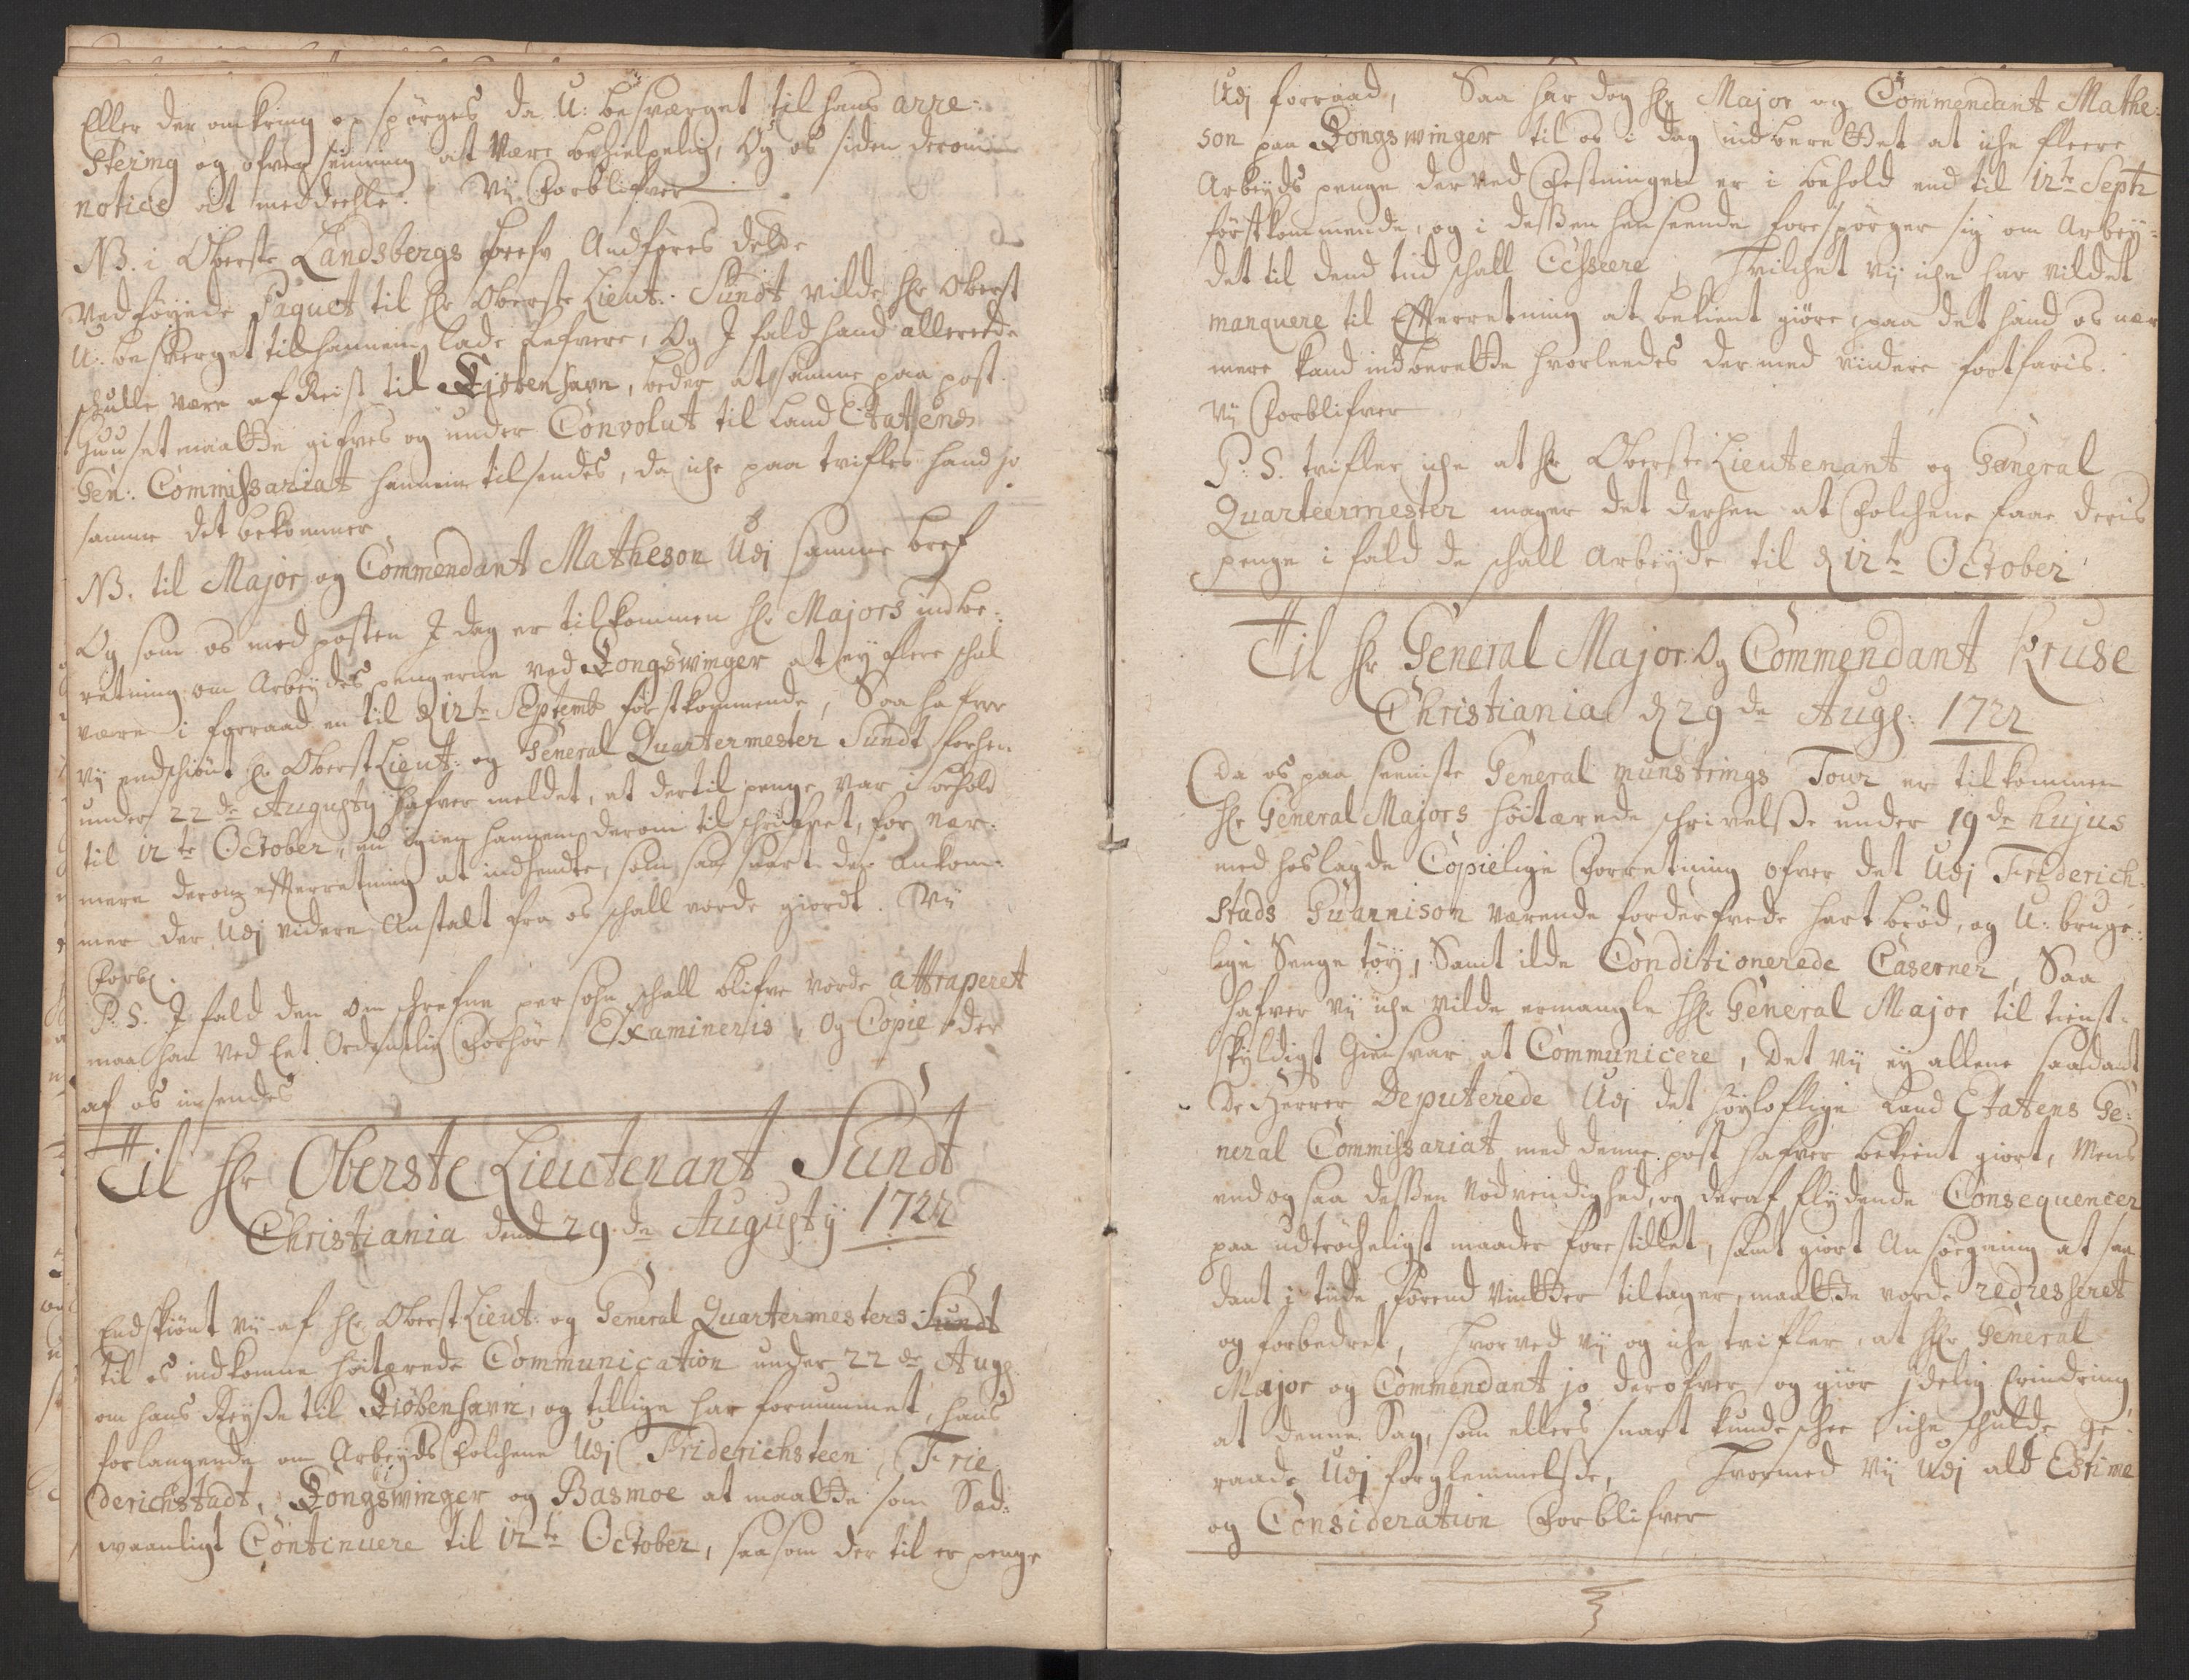 Eller der omkring op spørges da U: besværget til hans arre-
stering og ofver sending at være behielpelig, Og os siden derom
notice at meddeehle. Vij Forblifver
NB. i Oberste Landsbergs bref Andføres dette
Vedføyede Paquet til Hr Oberste Lieut: Sundt vilde Hr Oberst
U: besværget til hannem lade lefvere, Og J fald hand allereede
schulle være af Reist til Kjøbenhavn, beder at samme paa post
Huuset maatte gifves og under Convolut til Land Etatens
Gen: Commissariat hannem tilsendes, da iche paa tvifles hand jo
samme det bekommer
NB. til Major og Commendant Matheson Udj samme bref
Og som os med posten J dag er tilkommen Hr Majors indbe-
retning om Arbeyds pengerne ved Kongswinger at ey flere schal
være i forraad en til d 12te Septemb førstkommende, Saa hafver
vij endschiønt Hr Oberst Lieut: og General Quartermester Sundt forhen
under 22de Augusty hafver meldet, at dertil penge var i behold
til 12te October, nu igien hannem derom til schrefvet, for nær-
mere derom efterretning at indhendte, som saa snart den ankom-
mer der Udj videre Anstalt fra os schall vorde giordt. Vij
Forbl.
P. S. J fald den om schrefne persohn schall blifve vorde attraperet
maa han ved Eet Ordentlig Forhør Examineris, Og Copie der
af os insendes
Til Hr Oberste Lieutenant Sundt
Christiania dend 29.de Augusty 1722
Endskiønt vij af Hr Oberst Lieut: og General Quartermesters Sundt
til os indkomne høitærede Communication under 22de Aug
om hans Reyse til Kiøbenhavn, og tillige har fornummet, hans
forlangende om Arbeyds Folchene Udj Friderichsteen, Frie
derichstadt, Kongswinger og Basmoe at maatte som Sæd-
waanligt Continuere til 12te October, saasom der til er penge
Udj forraad, Saa har dog Hr Major og Commendant Mathe-
son paa Kongswinger til os i dag indberettet at iche fleere
Arbeyds penge der ved Festningen er i behold end til 12te Septr
førstkommende, og i dessen henseende forespørger sig om Arbey-
det til dend tiid schall Cessere, Hvilchet vij iche har vildet
manquere til Efterretning at bekient giøre, paa det hand os nær
mere kand indberette hvorleedes der med viidere fortfaris.
Vij Forblifver
P. S. tvifler iche at Hr Oberste Lieutenant og General
Quarteermester mager det derhen at Folchene faae deris
penge i fald de schall arbeyde til d 12te October
Til Hr General Major Og Commendant Kruse
Christiania d 29de Aug: 1722
Da os paa seeniste General munstrings Tour er tilkommen
Hr General Majors høitærede schrivelse under 19de hujus
med hoslagde Copielige Forretning ofver det Udj Friderich-
stads Guarnison værende forderfvede hart brød, og U: bruge-
lige Senge tøy, Samt ilde Conditionerede Caserner, Saa
hafver vij iche vilde ermangle Hr General Major til tienst-
skyldigst Giensvar at Communicere, Det vij ey allene saadant
De Herrer Deputerede Udj det høyloflige Land Etatens Ge-
neral Commissariat med denne post hafver bekient giort, Mens
end og saa dessen Nødvendighed, og deraf flydende Consequencer
paa udtrøcheligst maader forestillet, samt giort Ansøgning at saa
dant i tiide førend Vinter tiltager, maatte vorde redresseret
og forbedret, Hvorved vij og iche tvifler, at Hr General
Major og Commendant jo derofver og giør jdelig Erindring
at denne Sag, som ellers snart kunde schee iche schulde ge-
raade Udj forglemmelse, Hvormed Vij Udj ald Estime
og Consideration Forblifver